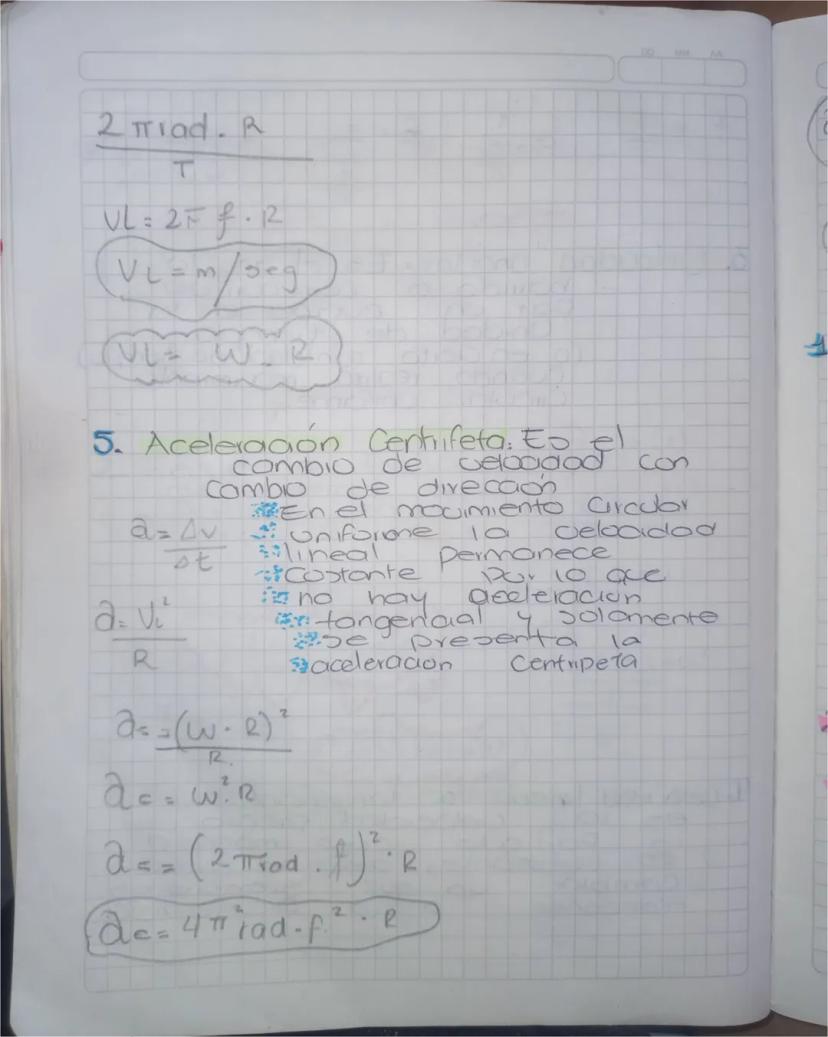 2 πrad. R
T
VL = 2π f . R
VL = m/seg
VL = W. R
5. Aceleración Centrifeta: Es el
cambio de velocidad con
cambio de dirección
En el mocimiento circular
a = Δv
Δt
uniforme la velocidad
lineal permanece
costante por lo que
no hay aceleracion
tangencial y solamente
se presenta la
aceleracion centripeta
a = VL²
R
ac = (W . R)²
R.
ac = W². R
ac = (2 πrad . f)² . R
ac = 4π² rad . f² . R